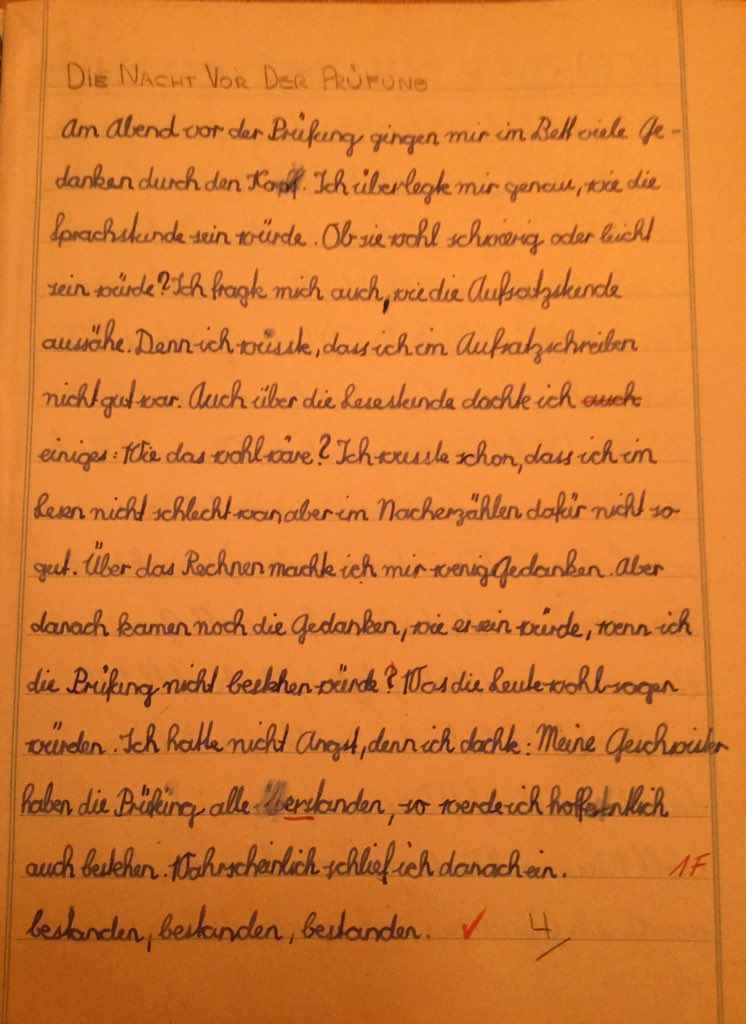 DIE NACHT VOR DER PRÜFUNG
Am Abend vor der Prüfung gingen mir im Bett viele Ge-
danken durch den Kopf. Ich überlegte mir genau, wie die
Sprachstunde sein würde. Ob sie wohl schwierig oder leicht
sein würde? Ich fragte mich auch, wie die Aufsatzstunde
aussähe. Denn ich wusste, dass ich im Aufsatzschreiben
nicht gut war. Auch über die Lesestunde dachte ich auch
einiges: Wie das wohl wäre? Ich wusste schon, dass ich im
Lesen nicht schlecht war, aber im Nacherzählen dafür nicht so
gut. Über das Rechnen machte ich mir wenig Gedanken. Aber
danach kamen noch die Gedanken, wie es sein würde, wenn ich
die Prüfung nicht bestehen würde? Was die Leute wohl sagen
würden. Ich hatte nicht Angst, denn ich dachte: Meine Geschwister
haben die Prüfung alle überstanden, so werde ich hoffentlich
auch bestehen. Wahrscheinlich schlief ich danach ein. 1F
bestanden, bestanden, bestanden. ✓ 4